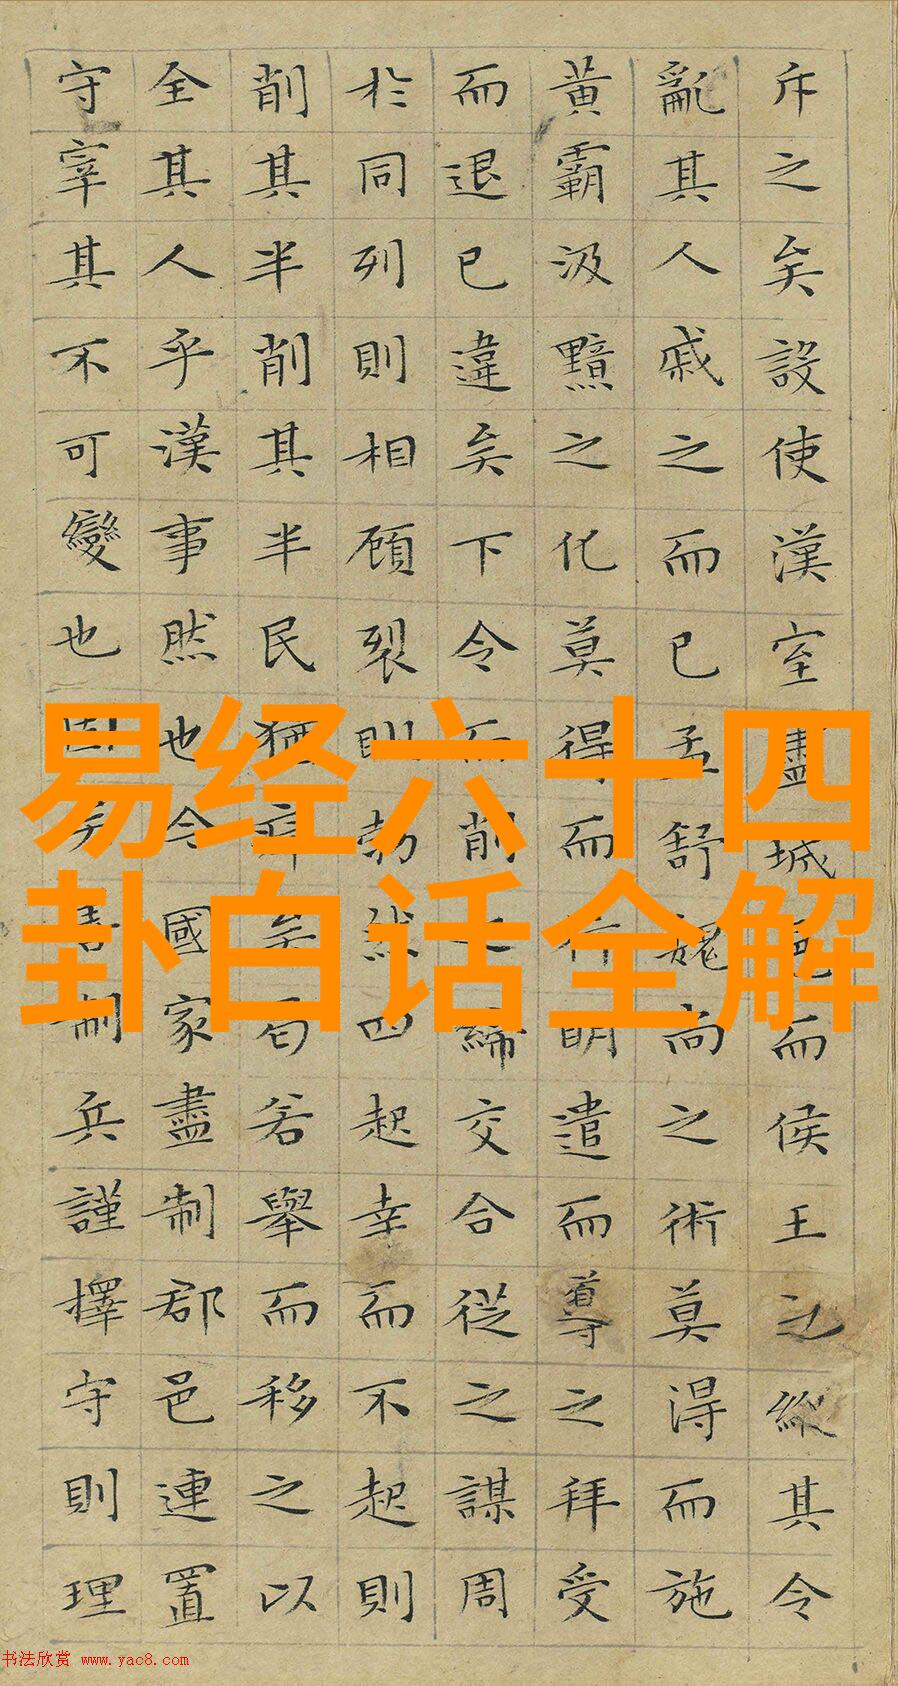 斥之矣設使漢室盡城邑而侯王之縱其令
亂其人戚之而已孟舒魏尚之術莫得而施
黃霸汲黯之化莫得而行明遣而導之拜受
而退已違矣下令而削之締交合從之謀周
於同列則相顧裂眦勃然四起幸而不起則
削其半削其半民猶瘁矣曷若舉而移之以
全其人乎漢事然也今國家盡制郡邑連置
守宰其不可變也固矣善制兵謹擇守則理
易经六十四
卦白话全解
书法欣赏 www.yac8.com